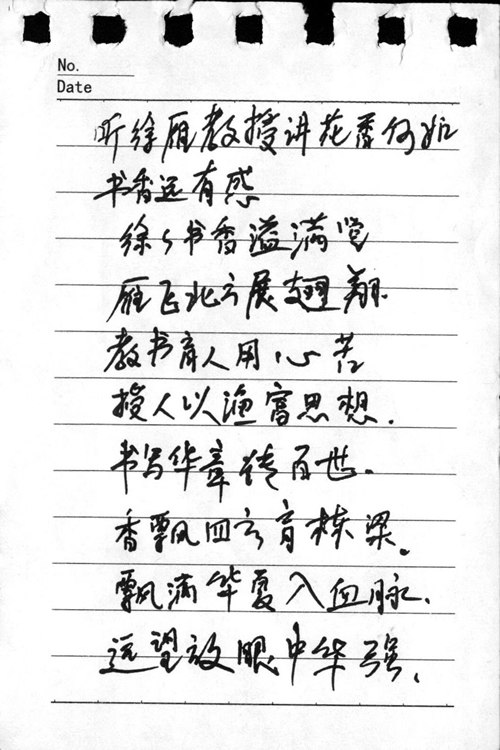 No.
Date
听徐雁教授讲花香何如
书香远有感
徐々书香溢满堂
雁飞北方展翅翔.
教书育人用心苦
授人以渔富思想.
书写华章传百世.
香飘四方育栋梁。
飘满华夏入血脉.
远望放眼中华强.